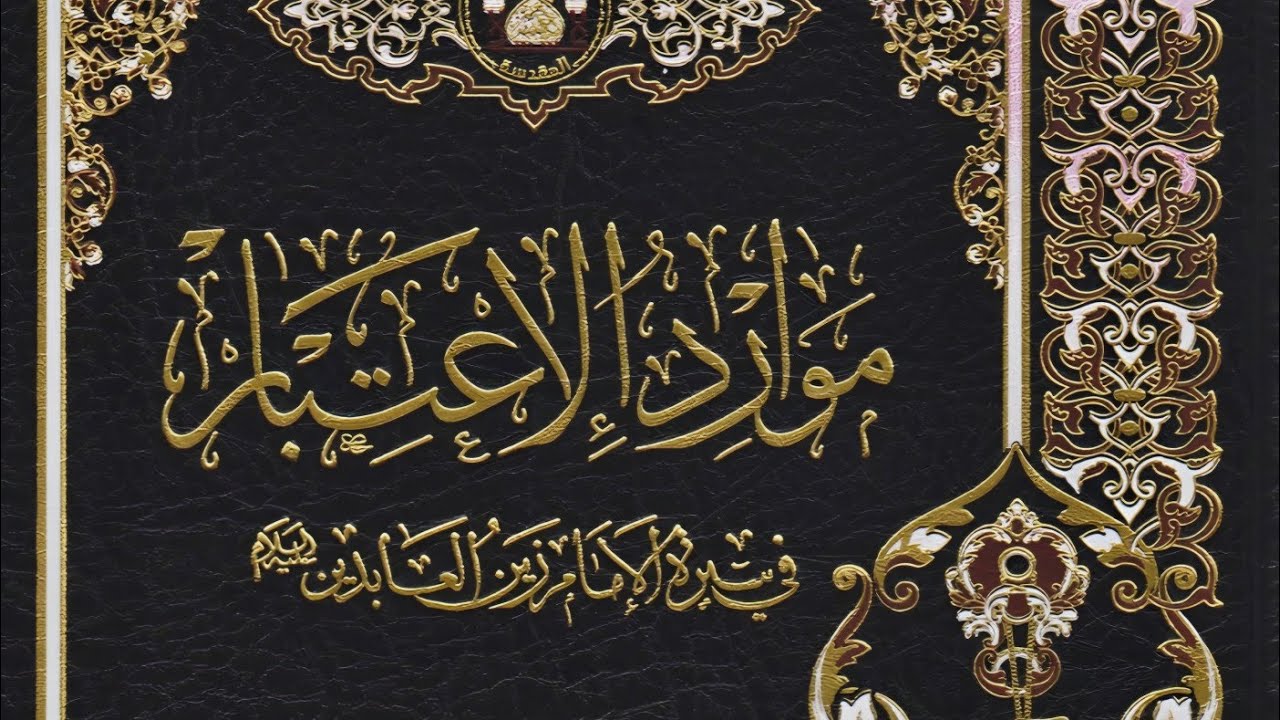 المقدسة
مَوَارِدُ الْإِعْتِبَارِ
في سيرة الإمام زين العابدين عليه السلام